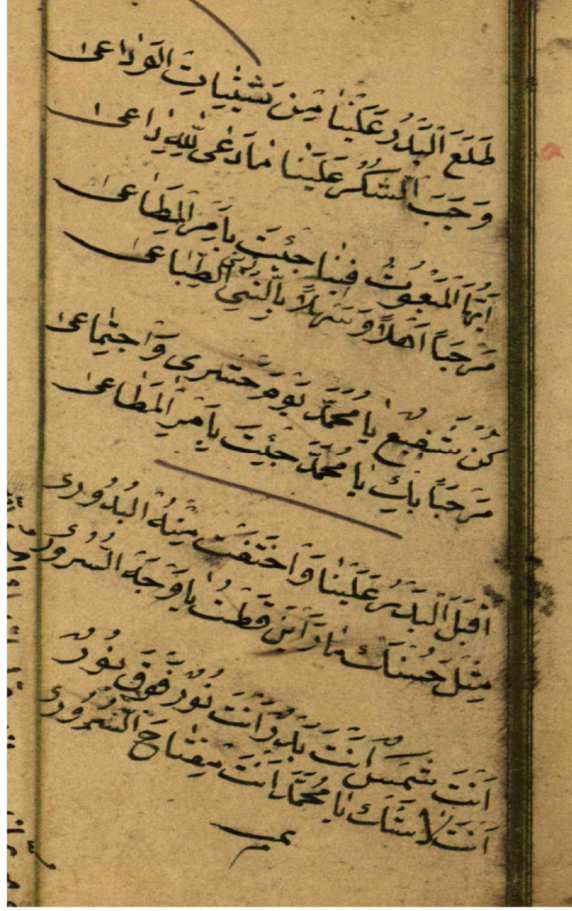 طَلَعَ الْبَدْرُ عَلَيْنَا مِنْ ثَنِيَاتِ الْوَدَاعِى
وَجَبَ الشُّكْرُ عَلَيْنَا مَا دَعٰى لِلّٰهِ دَاعِى
اَيُّهَا الْمَبْعُوثُ فِينَا جِئْتَ بِاَمْرِ الْمُطَاعِى
مَرْحَبًا اَهْلًا وَسَهْلًا بِالنَّبِىِّ الطِّبَاعِى
كُنْ شَفِيعْ يَا مُحَمَّدْ يَوْمَ حَشْرِى وَاجْتِمَاعِى
مَرْحَبًا بِكِ يَا مُحَمَّدْ جِئْتَ بِاَمْرِ الْمُطَاعِى
اَقْبَلَ الْبَدْرُ عَلَيْنَا وَاخْتَفَتْ مِنْهُ الْبُدُورِى
مِثْلَ حُسْنِكْ مَا رَاَيْنَ قَطُّ يَا وَجْهَ السُّرُورِى
اَنْتَ شَمْسٌ اَنْتَ بَدْرٌ اَنْتَ نُورٌ فَوْقَ نُورٌ
اَنْتَ لَاشَكْ يَا مُحَمَّدْ اَنْتَ مِفْتَاحَ السُّرُورِى